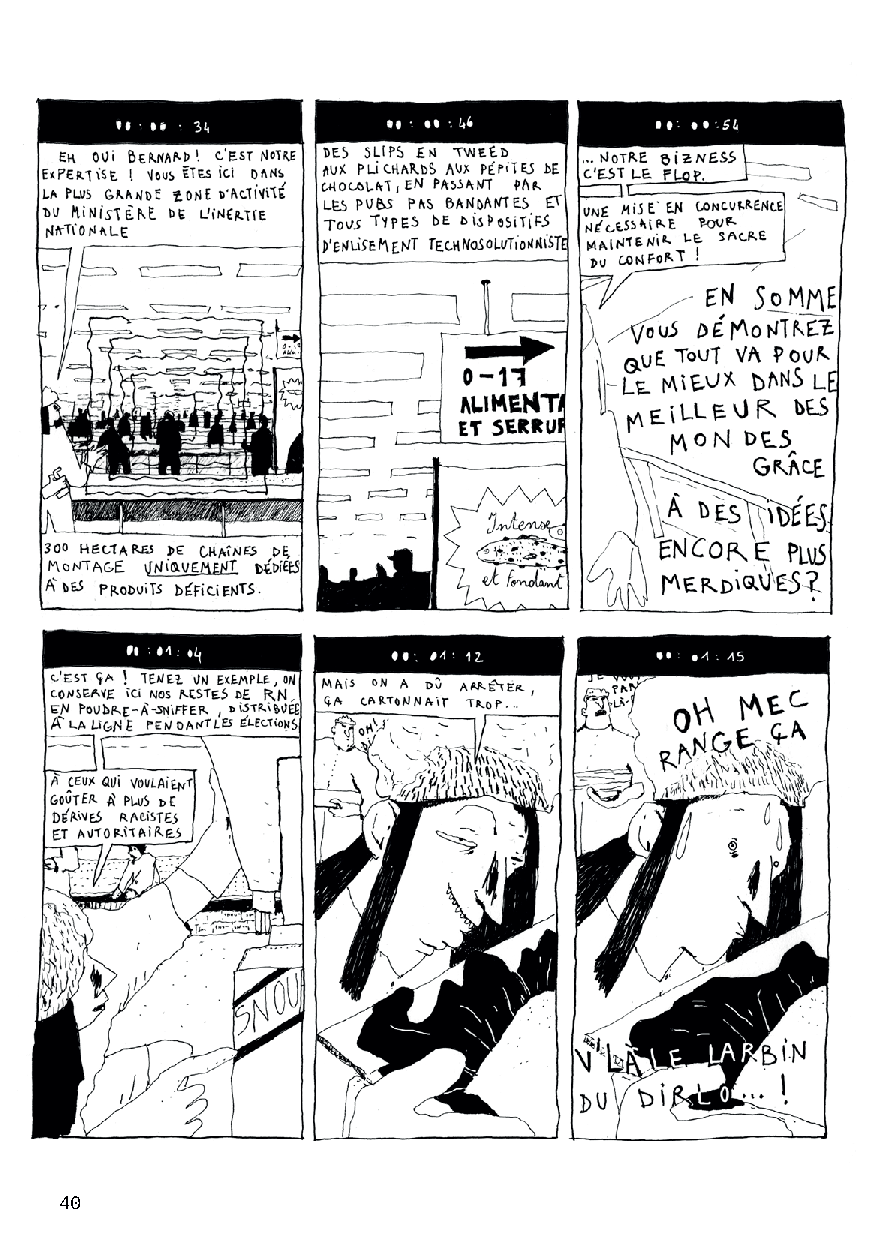 00:00:34
EH OUI BERNARD! C'EST NOTRE
EXPERTISE! VOUS ÊTES ICI DANS
LA PLUS GRANDE ZONE D'ACTIVITÉ
DU MINISTÈRE DE L'INERTIE
NATIONALE
300 HECTARES DE CHAÎNES DE
MONTAGE UNIQUEMENT DÉDIÉES
À DES PRODUITS DÉFICIENTS.
00:00:46
DES SLIPS EN TWEED
AUX PLICHARDS AUX PÉPITES DE
CHOCOLAT, EN PASSANT PAR
LES PUBS PAS BANDANTES ET
TOUS TYPES DE DISPOSITIFS
D'ENLISEMENT TECHNOSOLUTIONNISTE
0-17
ALIMENTA
ET SERRUR
Intense
et fondant
00:00:54
...NOTRE BIZNESS
C'EST LE FLOP.
UNE MISE EN CONCURRENCE
NÉCESSAIRE POUR
MAINTENIR LE SACRE
DU CONFORT!
EN SOMME
VOUS DÉMONTREZ
QUE TOUT VA POUR
LE MIEUX DANS LE
MEILLEUR DES
MONDES
GRÂCE
À DES IDÉES
ENCORE PLUS
MERDIQUES?
00:01:04
C'EST ÇA! TENEZ UN EXEMPLE, ON
CONSERVE ICI NOS RESTES DE RN
EN POUDRE-À-SNIFFER, DISTRIBUÉE
À LA LIGNE PENDANT LES ÉLECTIONS
À CEUX QUI VOULAIENT
GOÛTER À PLUS DE
DÉRIVES RACISTES
ET AUTORITAIRES
SNOU
00:01:12
MAIS ON A DÛ ARRÊTER,
ÇA CARTONNAIT TROP...
OH!
00:01:15
OH MEC
RANGE ÇA
V'LÀ LE LARBIN
DU DIRLO...!
40